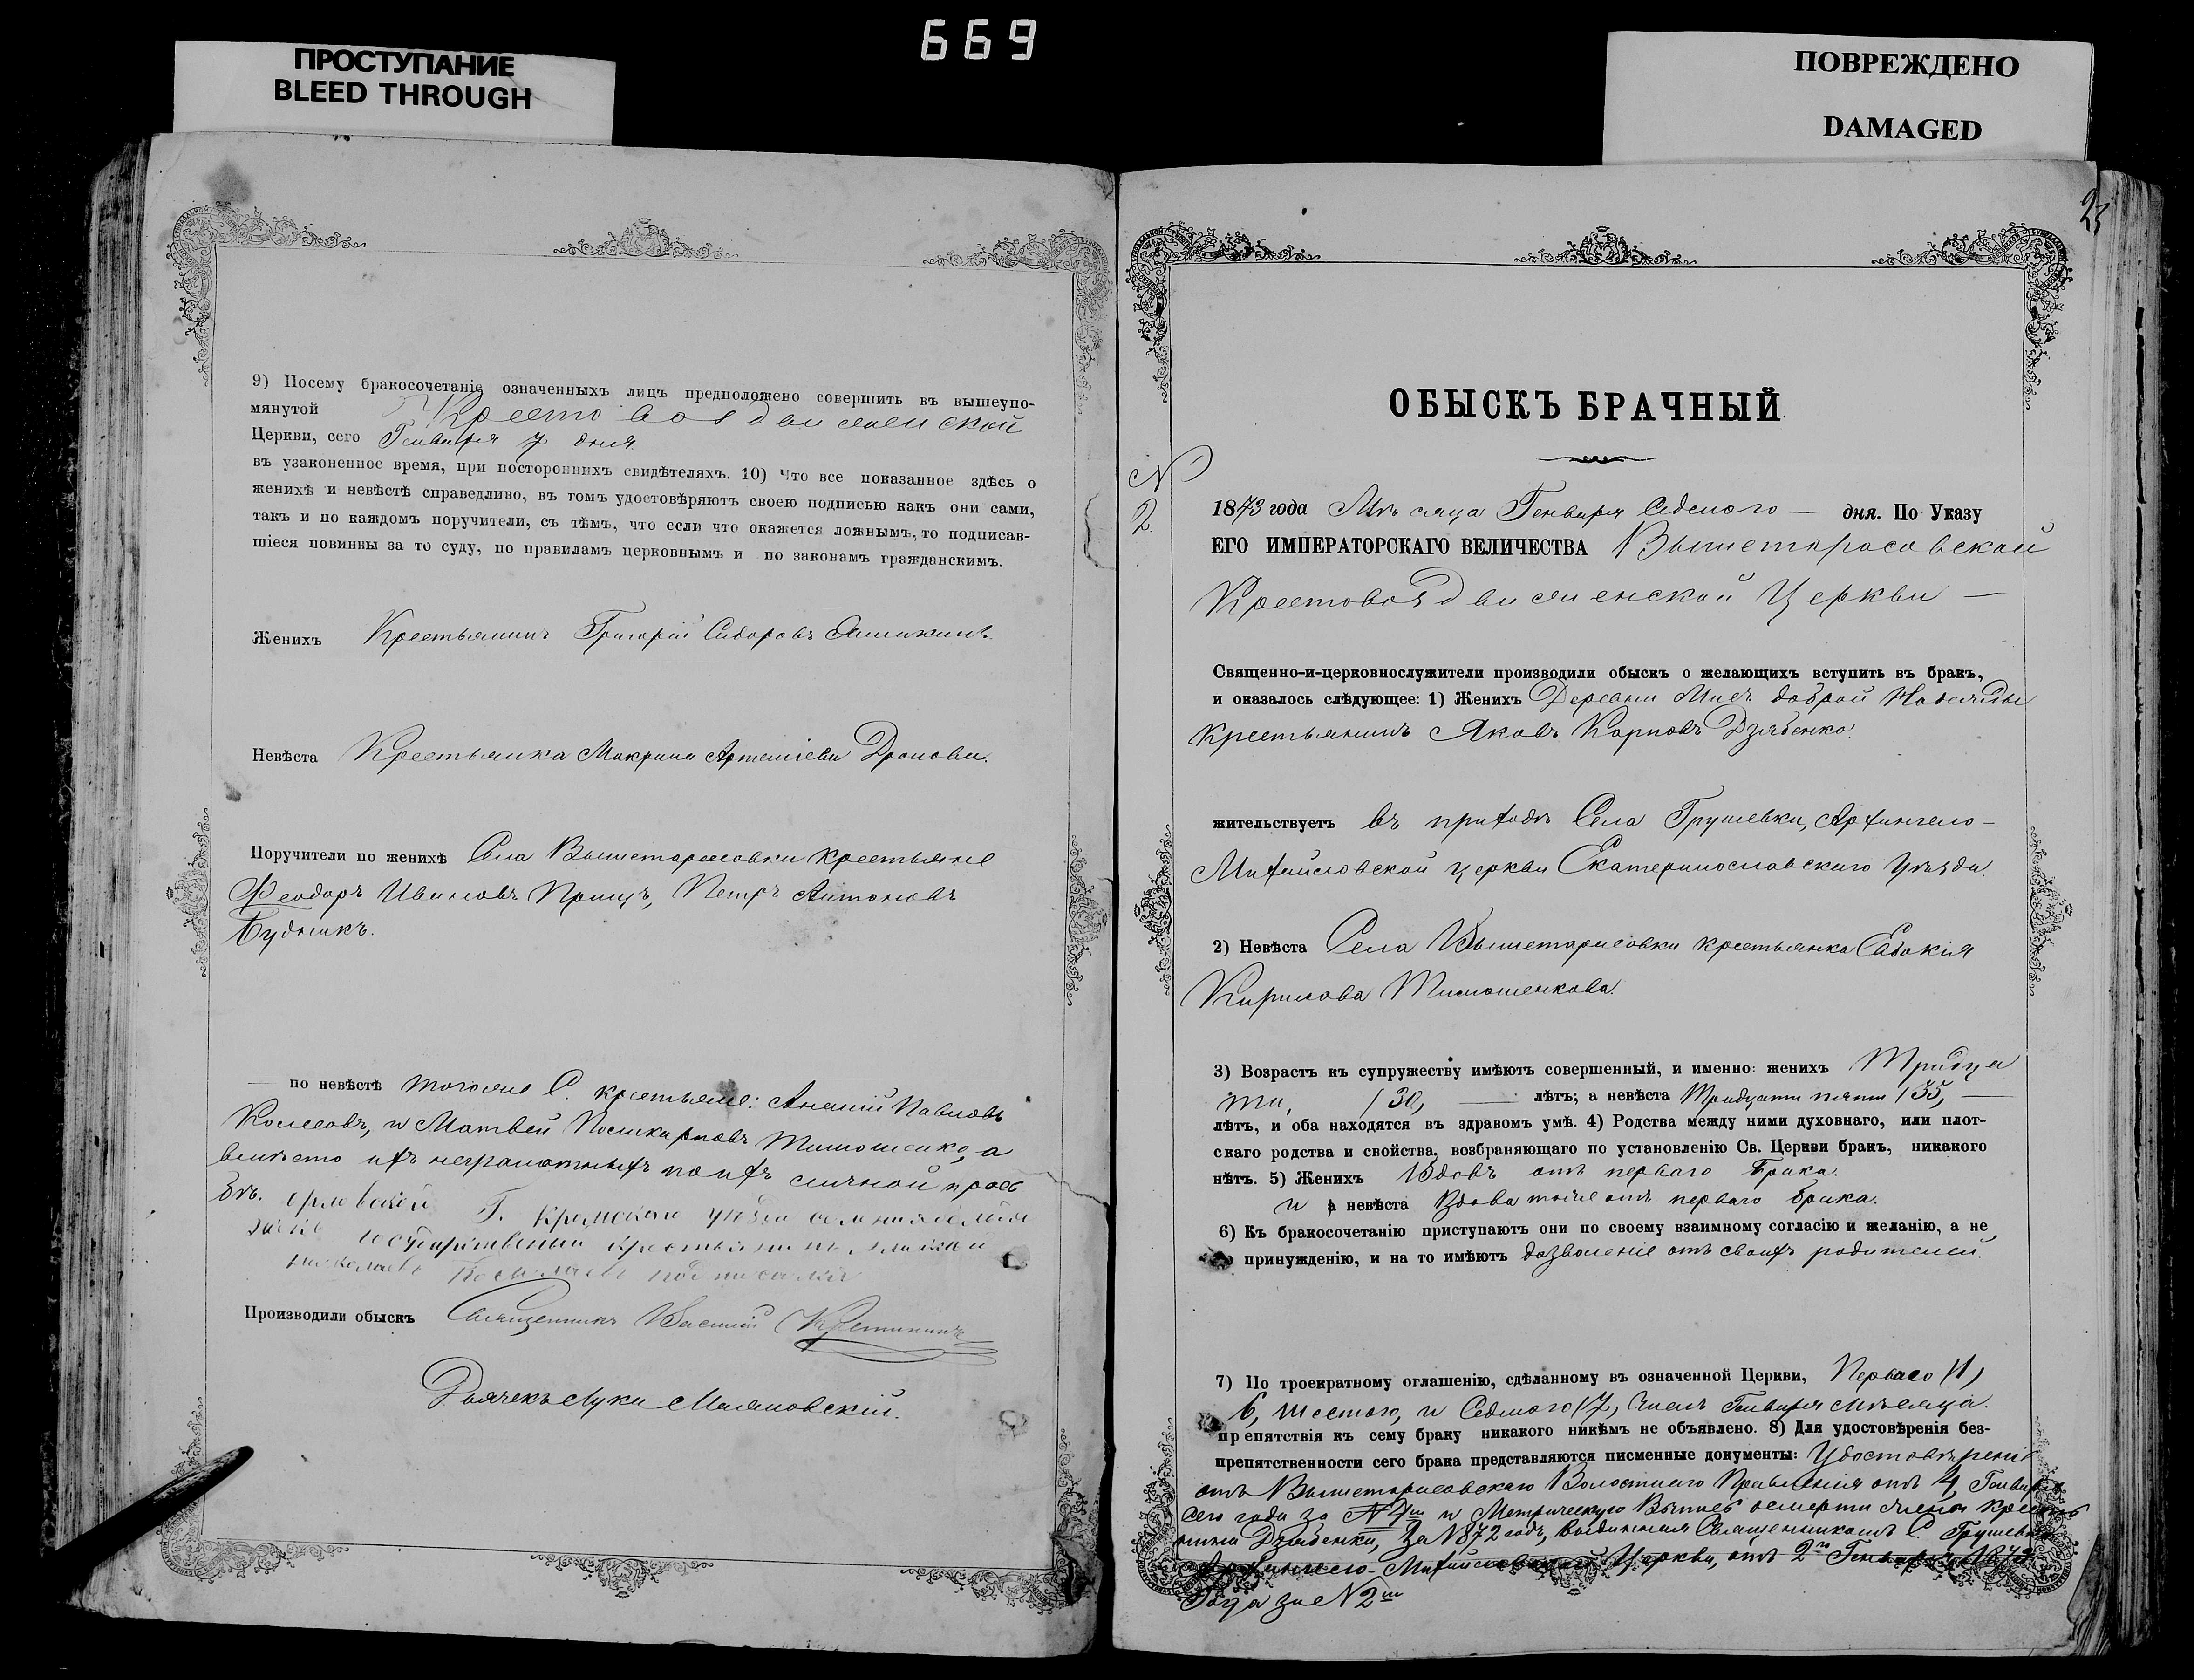 669
ПРОСТУПАНИЕ
BLEED THROUGH
ПОВРЕЖДЕНО
DAMAGED
9) Посему бракосочетаніе означенныхъ лицъ предположено совершить въ вышеупо-
мянутой Крестовоздвиженской
Церкви, сего Генваря 7 дня
въ узаконенное время, при постороннихъ свидѣтеляхъ. 10) Что все показанное здѣсь о
женихѣ и невѣстѣ справедливо, въ томъ удостовѣряютъ своею подписью какъ они сами,
такъ и по каждомъ поручители, съ тѣмъ, что если что окажется ложнымъ, то подписав-
шіеся повинны за то суду, по правиламъ церковнымъ и по законамъ гражданскимъ.
Женихъ Крестьянинъ Григорій Сидоровъ
Невѣста Крестьянка Макрина Артеміева
Поручители по женихѣ Села Вышетарасовки крестьяне
Феодоръ Ивановъ Прищъ, Петръ Антоновъ
Будникъ.
по невѣстѣ тогоже С. крестьяне: Ананій Павловъ
и Матвей Поликарповъ Тимошенко, а
вмѣсто ихъ неграмотныхъ по ихъ личной прось
бѣ.
подписался
Производили обыскъ Священникъ Василій
Дьячекъ Лука
23
ОБЫСКЪ БРАЧНЫЙ
N
2.
1873 года Мѣсяца Генваря Седмого — дня. По Указу
ЕГО ИМПЕРАТОРСКАГО ВЕЛИЧЕСТВА Вышетарасовской
Крестовоздвиженской Церкви —
Священно-и-церковнослужители производили обыскъ о желающихъ вступить въ бракъ,
и оказалось слѣдующее: 1) Женихъ Деревни Мысъ доброй Надежды
крестьянинъ Яковъ Карповъ Дзябенко.
жительствуетъ въ приходѣ Села Грушевки, Архангело-
Михайловской церкви Екатеринославскаго Уѣзда.
2) Невѣста Села Вышетарасовки крестьянка Евдокія
Кирилова Тимошенкова.
3) Возрастъ къ супружеству имѣютъ совершенный, и именно: женихъ Тридца
ти, /30, — лѣтъ; а невѣста Тридцати пяти /35, —
лѣтъ, и оба находятся въ здравомъ умѣ. 4) Родства между ними духовнаго, или плот-
скаго родства и свойства, возбраняющаго по установленію Св. Церкви бракъ, никакого
нѣтъ. 5) Женихъ Вдовъ отъ перваго брака.
и а невѣста Вдова тоже отъ перваго брака.
6) Къ бракосочетанію приступаютъ они по своему взаимному согласію и желанію, а не
по принужденію, и на то имѣютъ дозволеніе отъ своихъ родителей.
7) По троекратному оглашенію, сдѣланному въ означенной Церкви, Перваго /1,
6, шестого, и Седмого /7, числъ Генваря мѣсяца.
препятствія къ сему браку никакого никѣмъ не объявлено. 8) Для удостовѣренія без-
препятственности сего брака представляются писменные документы: Удостовѣреніе
отъ Вышетарасовскаго Волостнаго Правленія отъ 4, Генваря
сего года за N 4м и Метрическую Выпись о смерти жены крестья
нина Дзябенка, за 1872 годъ, выданная Священникомъ С. Грушевки
Архангело-Михайловской Церкви, отъ 2го Генваря 1873
Года за N 2м